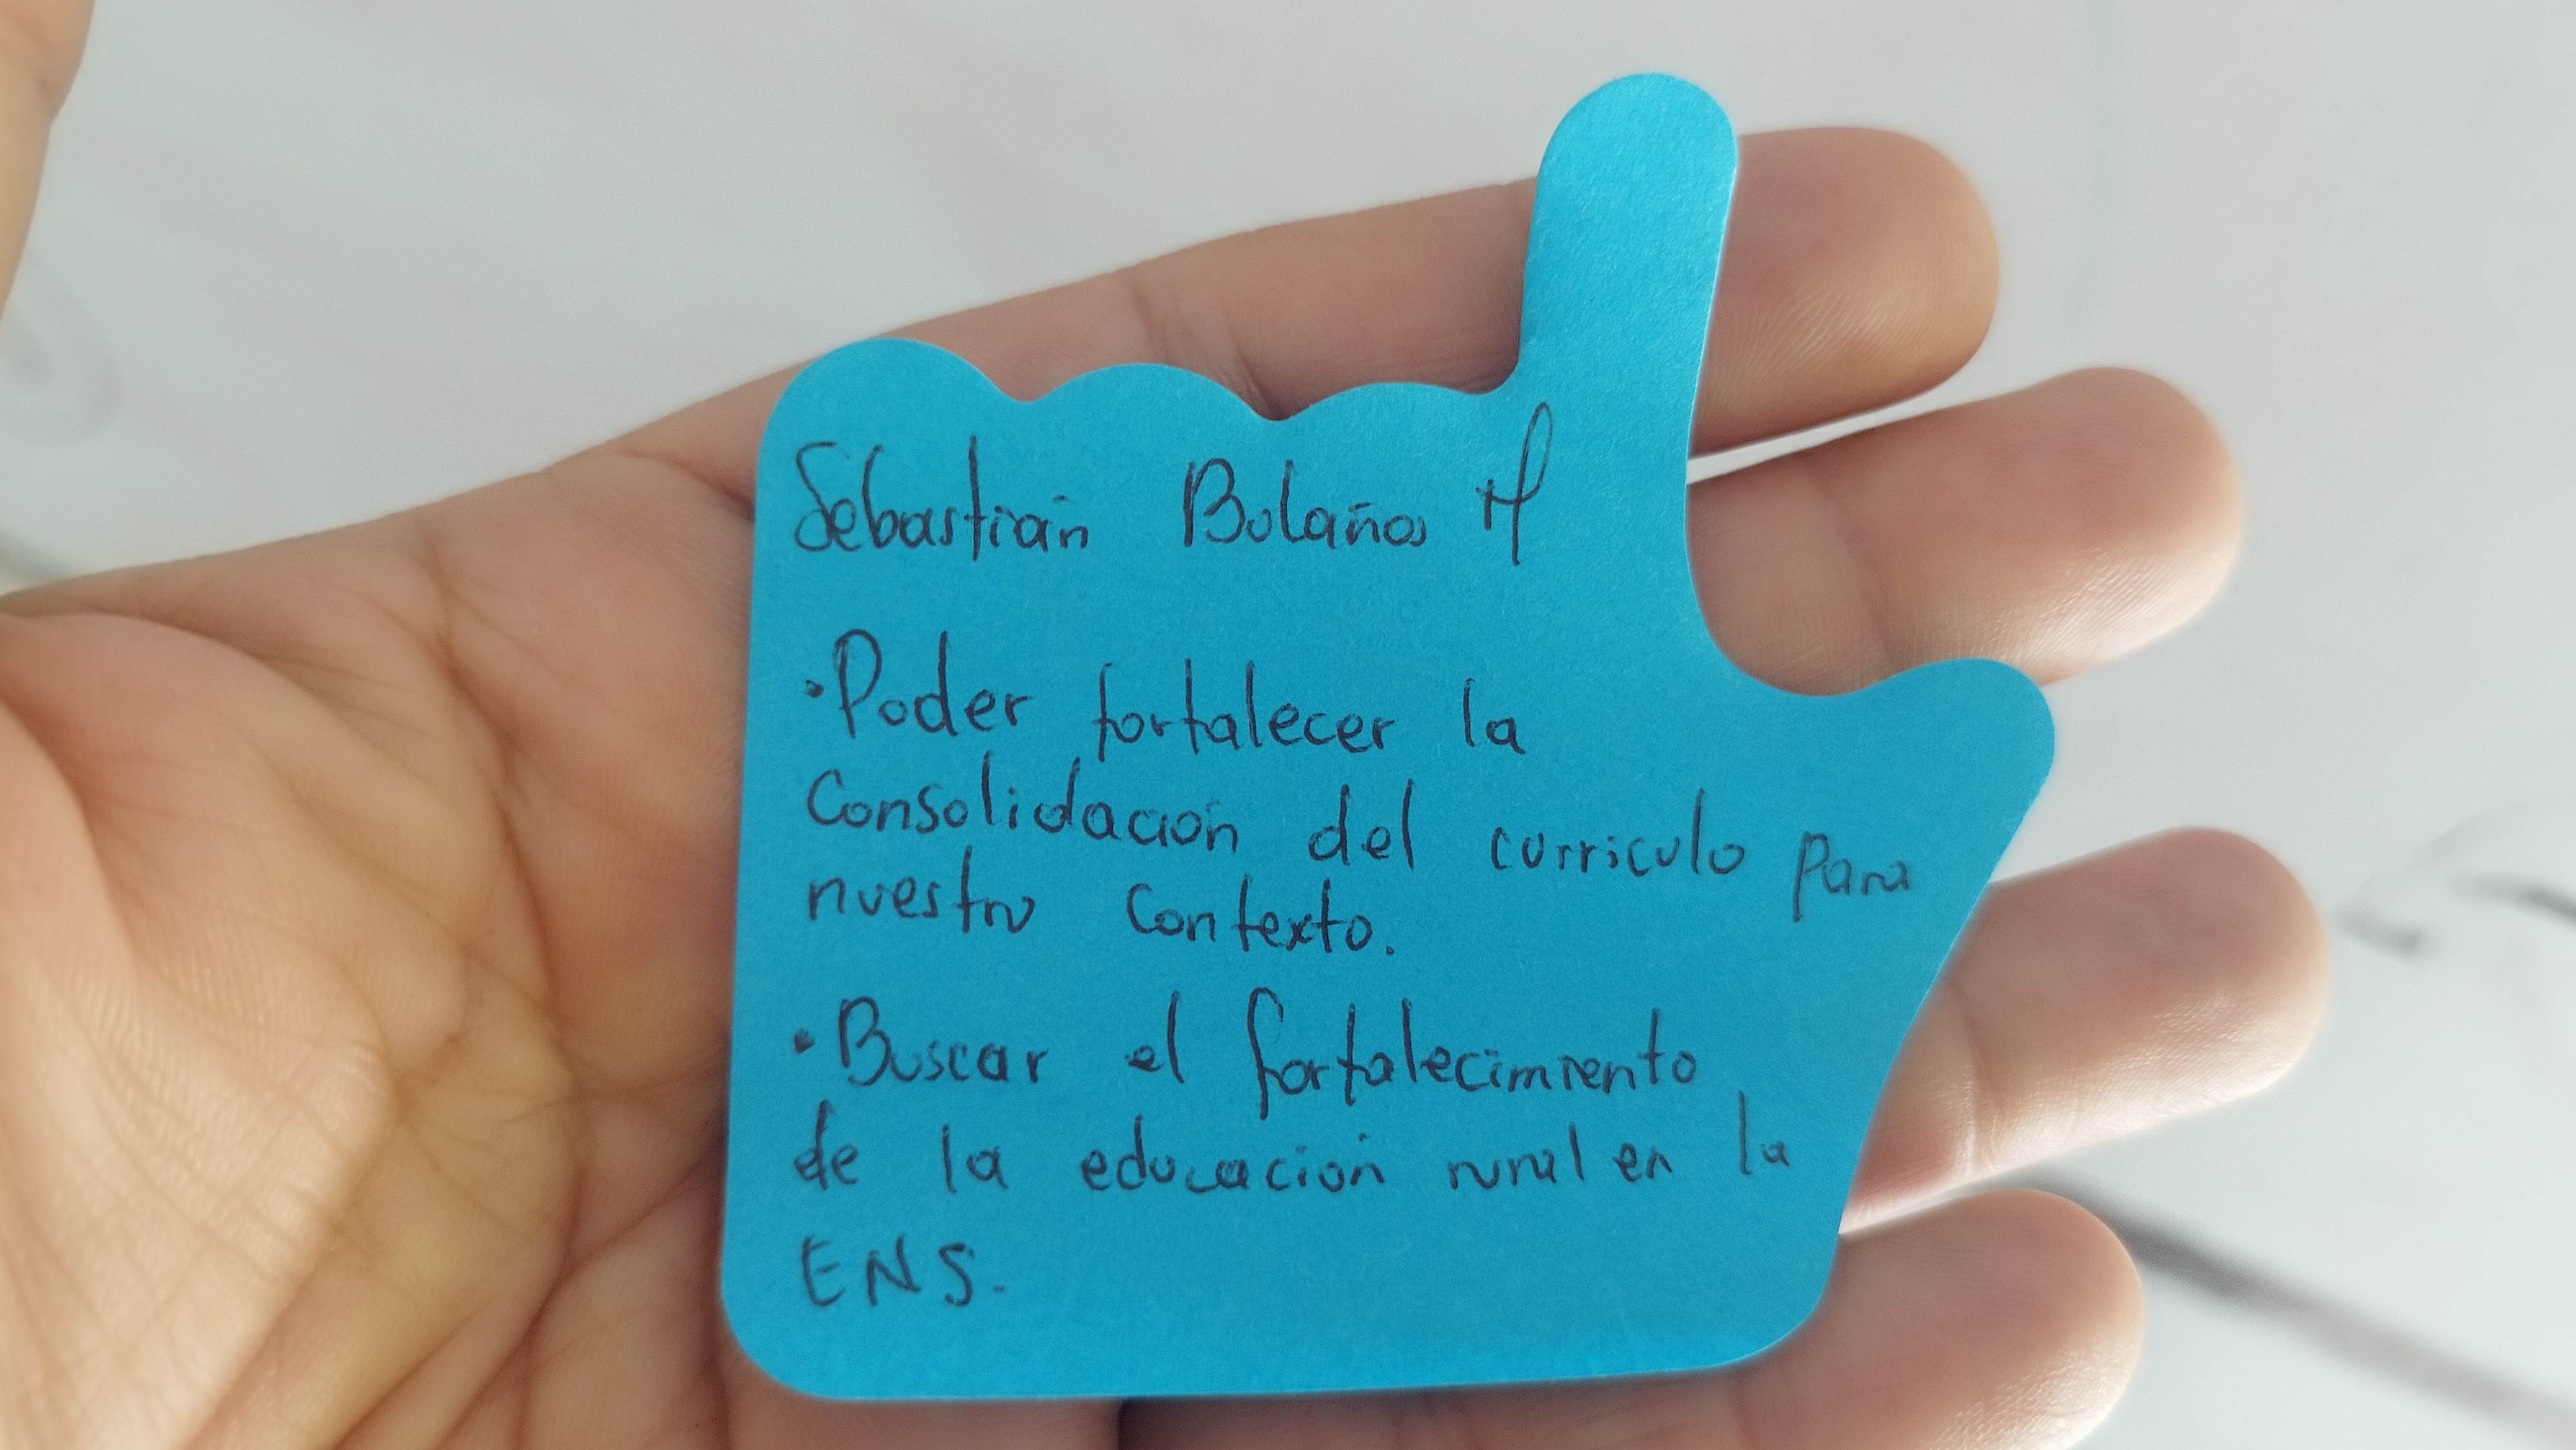 Sebastián Bolaños M
•Poder fortalecer la
Consolidación del curriculo para
nuestro Contexto.
•Buscar el fortalecimiento
de la educación rural en la
ENS.